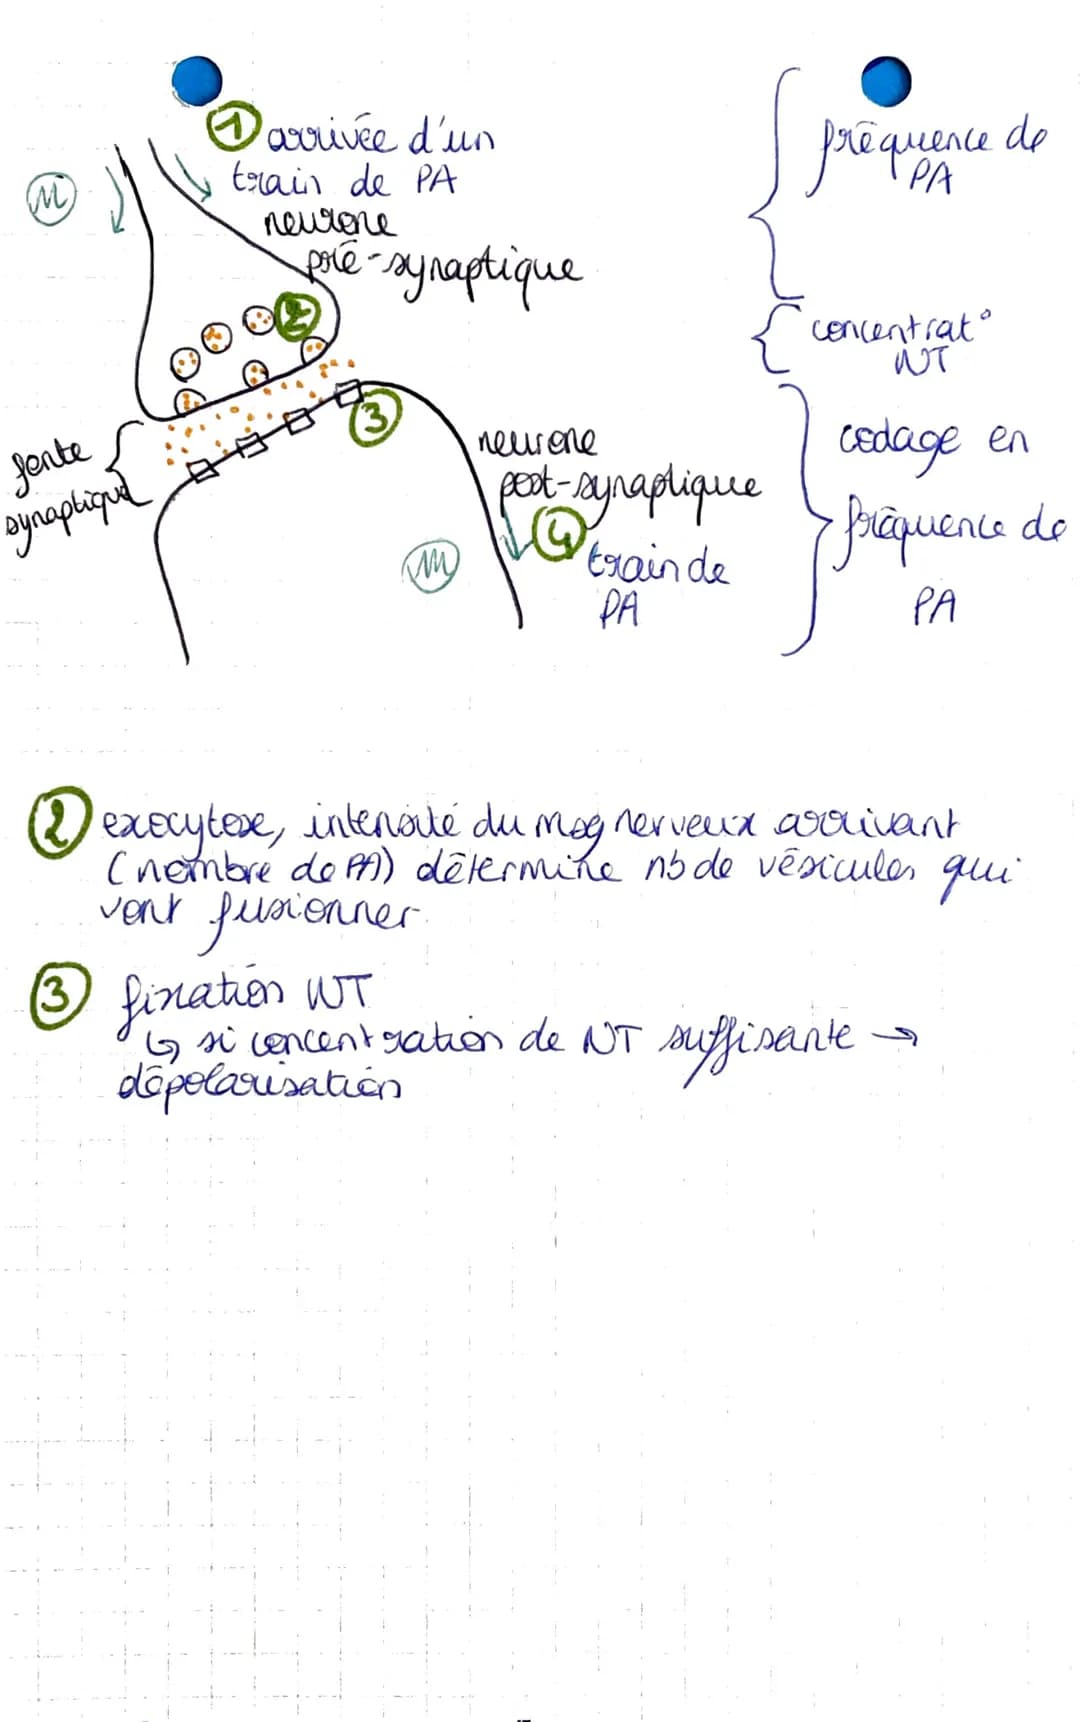 ① arrivée d'un
train de PA
neurone
pré-synaptique
②
③
fente
synaptique
neurone
post-synaptique
④
train de
PA
fréquence de
PA
concentrat°
NT
codage en
fréquence de
PA
② exocytose, intensité du msg nerveux arrivant
(nombre de PA) détermine nb de vésicules qui
vont fusionner
③ fixation NT
↳ si concentration de NT suffisante →
dépolarisation